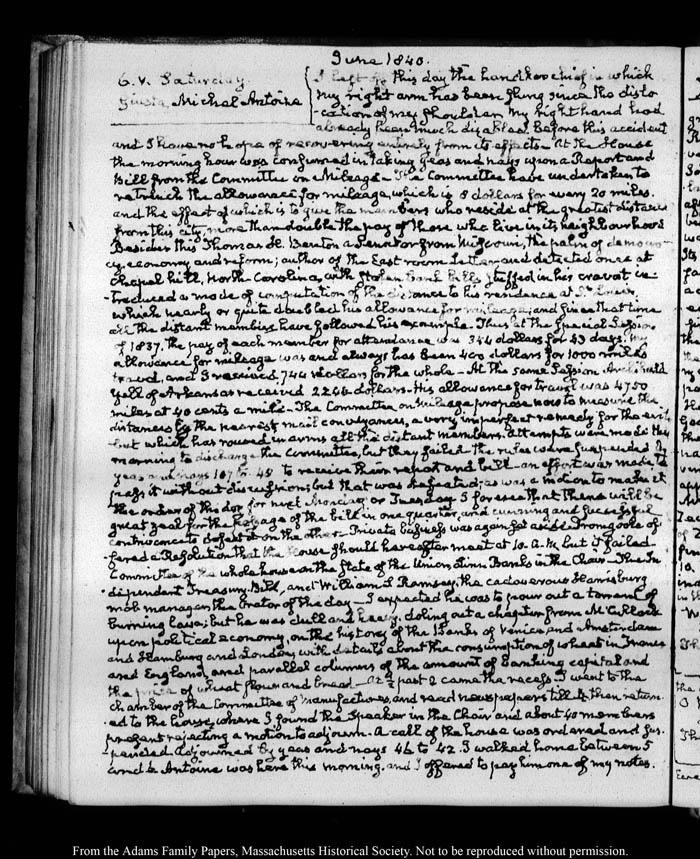 June 1840.
6. V. Saturday.
Giusta, Michal Antoine
I left off this day the handkerchief in which
my right arm has been slung since the dislo
cation of my shoulder. My right hand had
already been much disabled before this accident
and I have no hope of recovering entirely from its effects. At the House
the morning hour was consumed in taking yeas and nays upon a Report and
Bill from the Committee on Mileage - The Committee have undertaken to
retrench the allowance for mileage, which is 8 dollars for every 20 miles.
and the effect of which is to give the members who reside at the greatest distance
from this city, more than double the pay of those who live in its neighbourhood
Besides this Thomas H. Benton a Senator from Missouri, the palm of democra-
cy, economy and reform; author of the East room Letter and detected once at
Chapel hill, North Carolina, with stolen bank bills stuffed in his cravat in-
-troduced a mode of computation of the distance to his residence at St. Louis
which nearly or quite doubled his allowance for mileage, and since that time
all the distant members have followed his example. Thus at the Special Session
of 1837. the pay of each member for attendance was 344 dollars for 43 days. My
allowance for mileage was and always has been 400 dollars for 1000 miles
travel, and I received 744 dollars for the whole - At the same Session Archibald
Yell of Arkansas received 2246 dollars. His allowance for travel was 4750
miles at 40 cents a mile - The Committee on Mileage propose now to measure the
distances by the nearest mail conveyances, a very imperfect remedy for the evil,
but which has roused in arms all the distant members. Attempts were made this
morning to discharge the Committee, but they failed. the rules were suspended by
yeas and nays 107 to 48 to receive their report and bill - an effort was made to
pass it without discussion; but that was defeated; as was a motion to make it
the order of the day for next Monday or Tuesday. I foresee that there will be
great zeal for the passage of the bill in one quarter, and cunning and successful
contrivance to defeat it on the other - Private business was again set aside. Irongoole of-
-fered a Resolution that the House should hereafter meet at 10. A.M. but it failed.
Committee of the whole house on the state of the Union, Linn Banks in the Chair - The In
dependent Treasury Bill, and William S. Ramsey, the cadaverous Harrisburg
mob manager, the Orator of the day - I expected he was to pour out a torrent of
burning lava; but he was dull and heavy, doling out a chapter from McCulloch
upon political economy, on the history of the Banks of Venice and Amsterdam
and Hamburg and London, with details about the consumption of wheat in France
and England, and parallel columns of the amount of banking capital and
the price of wheat flour and bread - At ½ past 2 came the recess. I went to the
chamber of the Committee of Manufactures, and read newspapers till 4, then return-
-ed to the house, where I found the Speaker in the Chair and about 40 members
present rejecting a motion to adjourn. A call of the house was ordered and sus-
-pended. adjourned by yeas and nays 46 to 42. I walked home between 5
and 6 Antoine was here this morning. and I offered to pay him one of my notes.
From the Adams Family Papers, Massachusetts Historical Society. Not to be reproduced without permission.